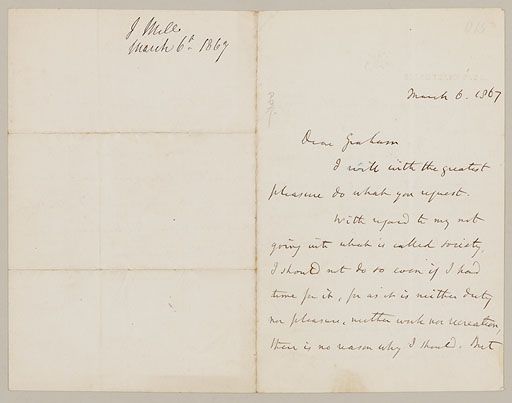 J Mill
March 6th 1867
March 6. 1867
Dear Graham
I will with the greatest
pleasure do what you request.
With regard to my not
going into what is called society,
I should not do so even if I had
time for it, for as it is neither duty
nor pleasure, neither work nor recreation,
there is no reason why I should. But